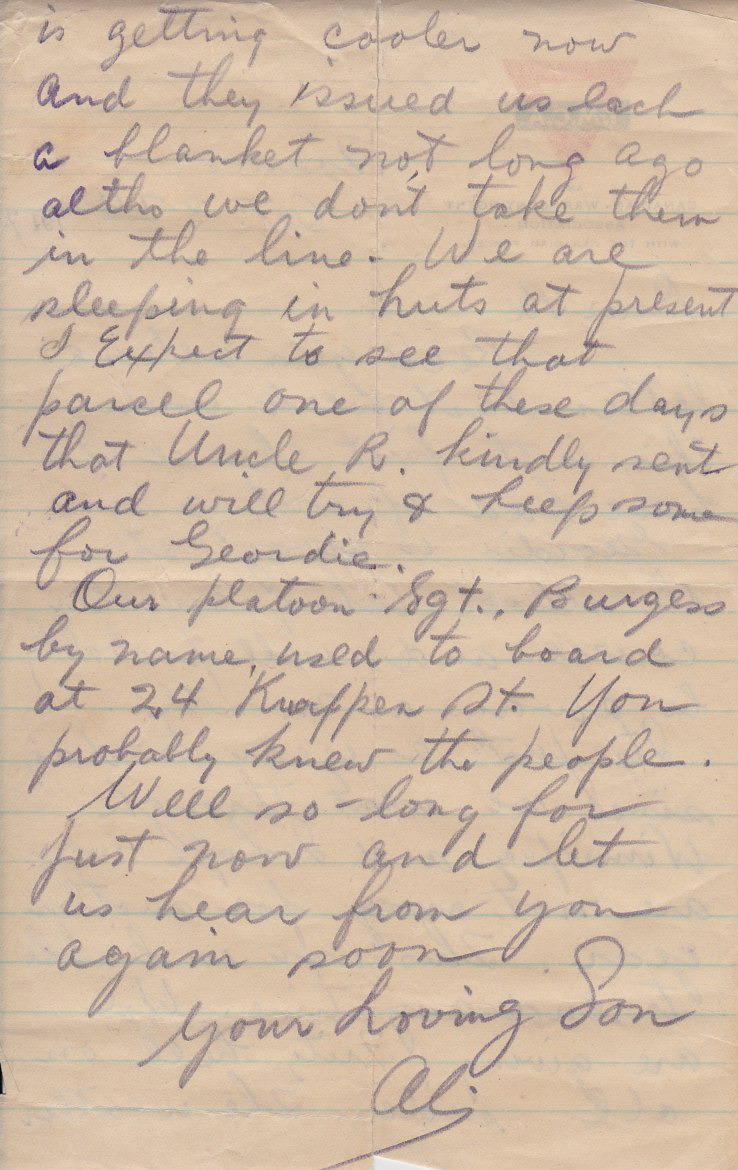 is getting cooler now
and they issued us each
a blanket not long ago
altho we don't take them
in the line. We are
sleeping in huts at present
I Expect to see that
parcel one of these days
that Uncle R. kindly sent
and will try & keep some
for Geordie.
Our platoon Sgt., Burgess
by name, used to board
at 24 St. You
probably knew the people.
Well so-long for
just now and let
us hear from you
again soon
Your Loving Son